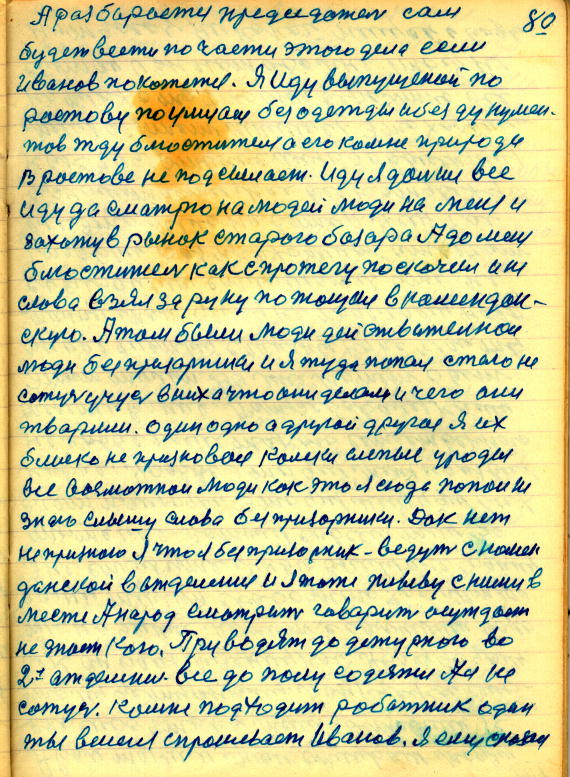 80
А разбараети председател сам
будет вести по части этого дела если
Иванов покожете. Я Иду выпущеной по
ростову по улицам без одежды и без думумен-
тов жду блюстителя а его комне природа
в ростове не подсылает. Иду я дальше все
иду да сматрю на людей люди на меня и
захожу в рынок старого базара А до мены
блюстител как с протегу поскочил и ни
слова взял за руку потощил в комендан-
скую. А там были люди действителной
люди безпризорники и я туда попал стаю не
сотуч учуев в них а что они делали и чего они
тварили. один одно а другой другое я их
близко не признавой колики слепые уроды
все возможной люди как это я сюда попал ни
знаю слышу слова безпризорники. Дак нет
не признаю я что я безпризорник - ведут с комен
данской в атделение и я тоже живьву с ними в
месте А народ сматрит гаварит осуждает
не знает кого. Приводят до дежурного во
2е атделени. все до полу содятся Ая не
сотус. комне подходит работник один
ты великя спрашивает Иванов. Я ему сказал